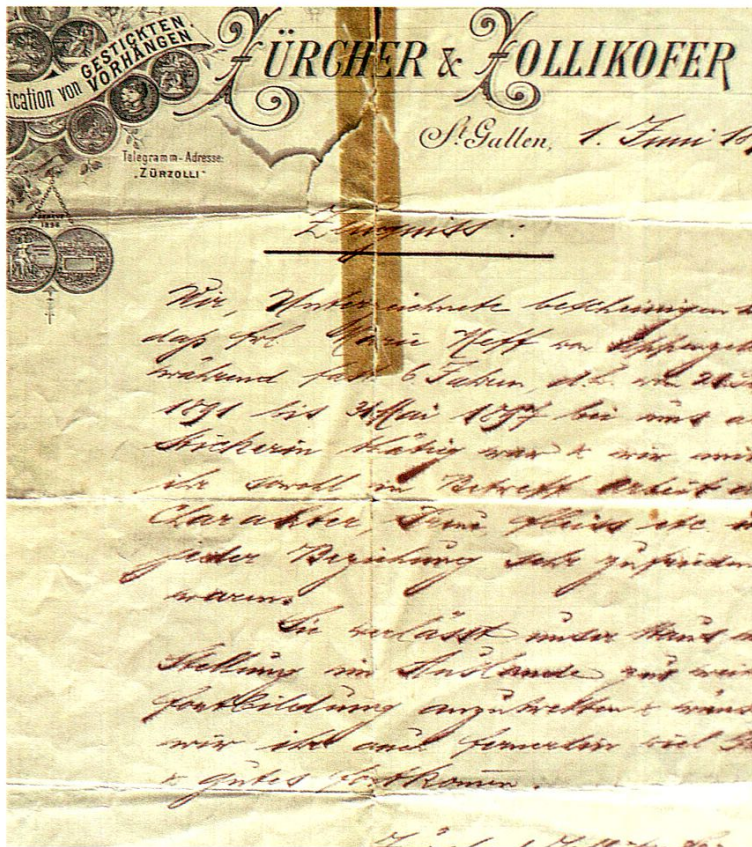 ication von GESTICKTEN
VORHÄNGEN
ZÜRCHER & ZOLLIKOFER
Telegramm-Adresse:
"ZÜRZOLLI"
St. Gallen, 1. Juni 18
Zeugniss:
Wir, Unterzeichnete bescheinigen
daß Frl Marie Neff von Appenzell
während fast 6 Jahren, d.h. von 21
1891 bis 31 Mai 1897 bei uns a
Stickerin thätig war & wir mit
ihr sowohl in Betreff Arbeit
Charakter, Treue, Fleiss etc.
jeder Beziehung sehr zufrieden
waren.
Sie verlässt unser Haus
Stellung im Auslande zur wei
Fortbildung anzutretten & wüns
wir ihr auch fernerhin viel
& gutes Fortkommen.